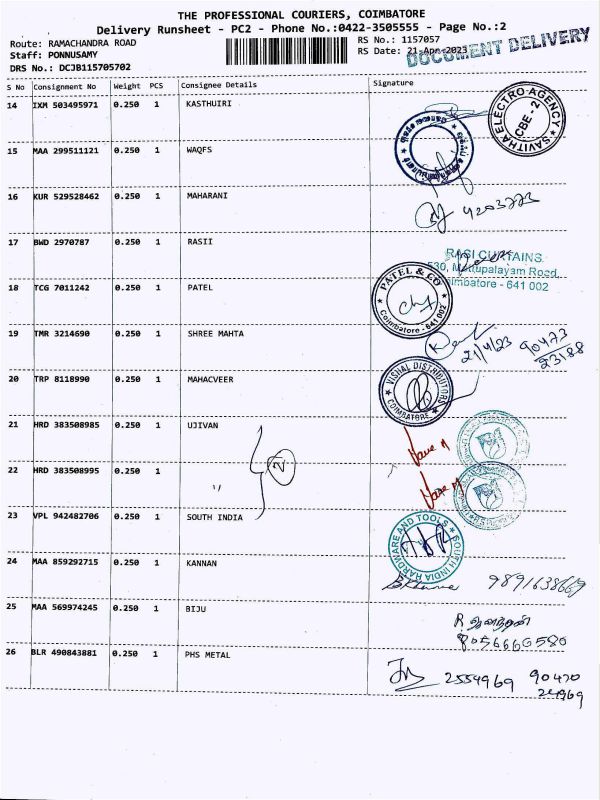 THE PROFESSIONAL COURIERS, COIMBATORE
Delivery Runsheet - PC2 - Phone No.:0422-3505555 - Page No.:2
Route: RAMACHANDRA ROAD
RS No.: 1157057
Staff: PONNUSAMY
RS Date: 21-Apr-2023
DOCUMENT DELIVERY
DRS No.: DCJB115705702
S No Consignment No Weight PCS Consignee Details Signature
14 IXM 503495971 0.250 1 KASTHUIRI
SAVITHA ELECTRO AGENCY CBE - 2
15 MAA 299511121 0.250 1 WAQFS
16 KUR 529528462 0.250 1 MAHARANI
4203773
17 BWD 2970787 0.250 1 RASII
RASI CURTAINS
530, Mettupalayam Road,
Coimbatore - 641 002
18 TCG 7011242 0.250 1 PATEL
PATEL & CO Coimbatore - 641 002
19 TMR 3214690 0.250 1 SHREE MAHTA
21/4/23 90473
23188
20 TRP 8118990 0.250 1 MAHACVEER
VISHAL DISTRIBUTORS COIMBATORE
21 HRD 383508985 0.250 1 UJIVAN
22 HRD 383508995 0.250 1 "
23 VPL 942482706 0.250 1 SOUTH INDIA
SOUTH INDIA HARDWARE AND TOOLS
24 MAA 859292715 0.250 1 KANNAN
9891638669
25 MAA 569974245 0.250 1 BIJU
8056660580
26 BLR 490843881 0.250 1 PHS METAL
2554969 90470
24969